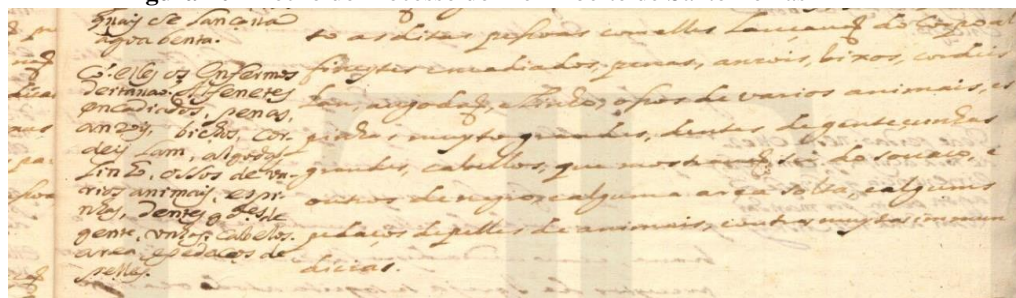 quais se lançava
agoa benta.
Cõ elles os Enfermos
deitavaõ alfenetes
encadiados, penas,
anzois, bichos, cor-
deis, lam, algodaõ
Linho, ossos de va-
rios animais, espi-
nhas, dentes gdes de
gente, unhas, cabelos
area, e pedaços de
pelles.
to as ditas pessoas com elles Lançavaõ do Corpo al
finetes encadiados, penas, anzois, bixos, cordeis
Lan, algodaõ, e linho, ossos de varios animais, es
pinhas muyto grandes, dentes de gente, unhas
grandes, cabellos, que mostravaõ ser de
outros de negro, e alguma area solta, e alguns
pedaços de pelles de animais, e outras muytas immun
dicias.